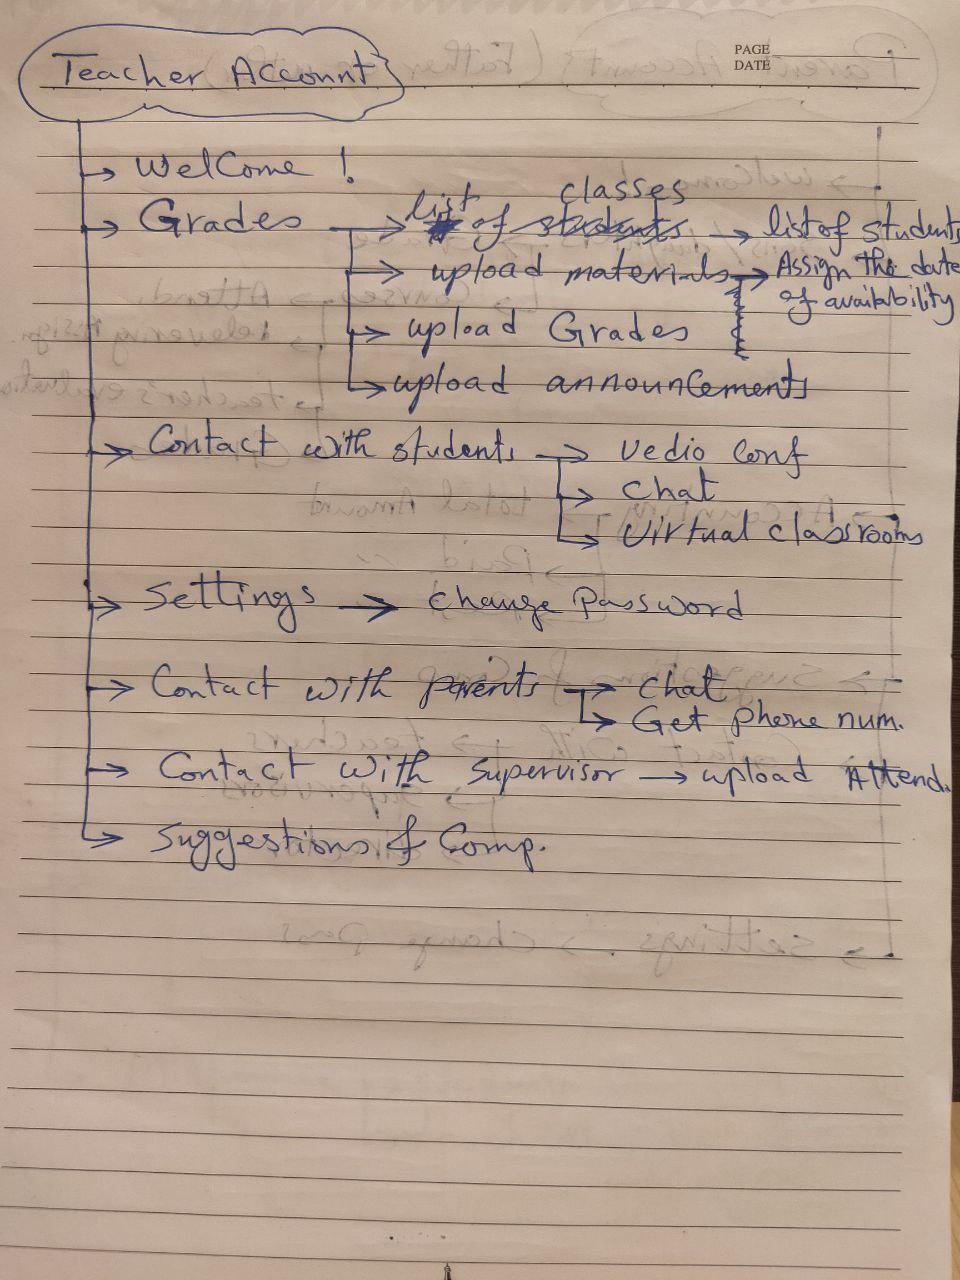 PAGE
DATE
Teacher Account
→ Welcome !
→ Grades → list of classes → list of students
→ upload materials → Assign the date of availability
→ upload Grades
→ upload announcements
→ Contact with students → Vedio Conf
→ Chat
→ Virtual classrooms
→ Settings → Change Password
→ Contact with parents → Chat
→ Get phone num.
→ Contact with Supervisor → upload Attend.
→ Suggestions & Comp.